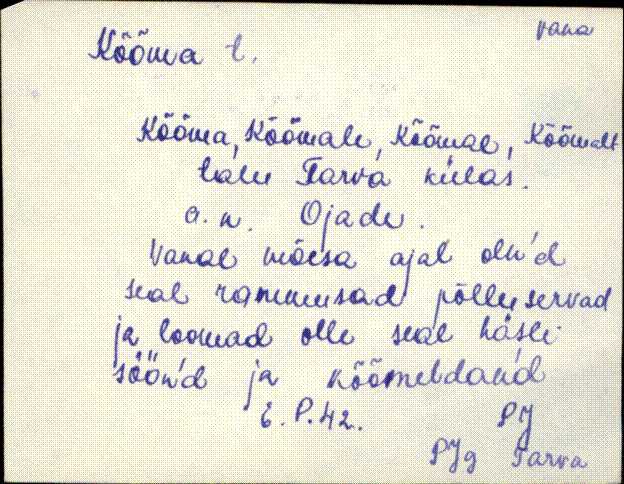 vana
Kõõma t.
Kõõma, Kõõmale, Kõõmal, Kõõmalt
talu Tarva külas.
a. n. Ojade.
Vanal mõesa ajal oln'd
seal rammusad põlluservad
ja loomad olle seal hästi
söön'd ja kõõmeldan'd
E. P. 42. PJ
PJg Tarva